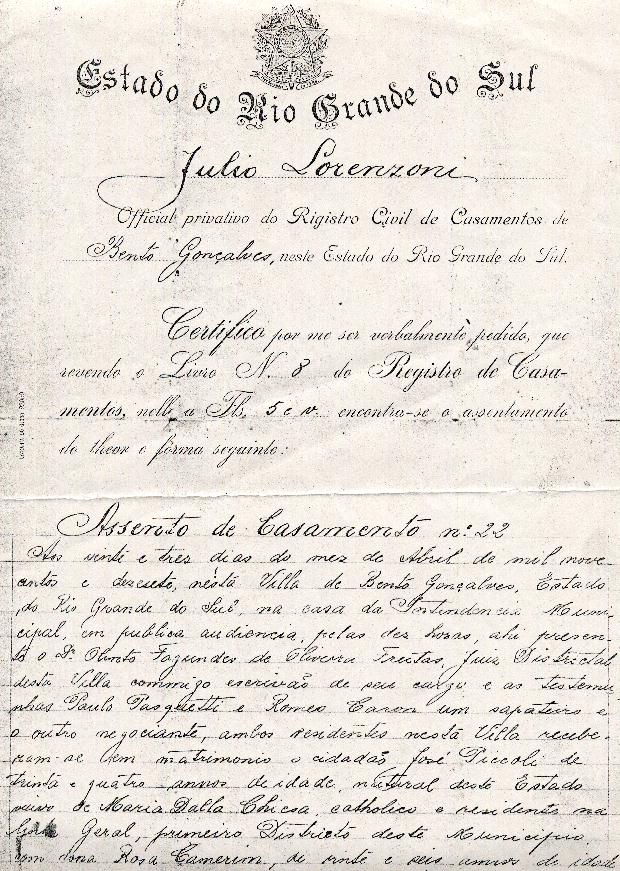 Estado do Rio Grande do Sul
Julio Lorenzoni
Official privativo do Rigistro Civil de Casamentos de
Bento Gonçalves, neste Estado do Rio Grande do Sul.
Certifico por me ser verbalmente pedido, que
revendo o Livro N. 8 do Registro de Casa-
mentos, nelle a Fls. 5 e v. encontra-se o assentamento
do theor e fórma seguinte:
Assento de Casamento nº 22
Aos vinte e tres dias do mez de Abril de mil nove-
centos e dezoito, nesta Villa de Bento Gonçalves, Estado
do Rio Grande do Sul, na casa da Intendencia Muni-
cipal, em publica audiencia, pelas dez horas, ahi presen-
te o Dr. Olinto Fagundes de Oliveira Freitas, Juiz Districtal
desta Villa commigo escrivão de seu cargo e as testemu-
nhas Paulo Pasquetti e Romeo Caron um sapateiro e
o outro negociante, ambos residentes nesta Villa recebe-
ram-se em matrimonio o cidadão José Piccoli de
trinta e quatro annos de idade, natural deste Estado
viuvo de Maria Dalla Chiesa catholico e residente na
Geral, primeiro Districto deste Municipio,
com dona Rosa Camerim, de vinte e seis annos de idade